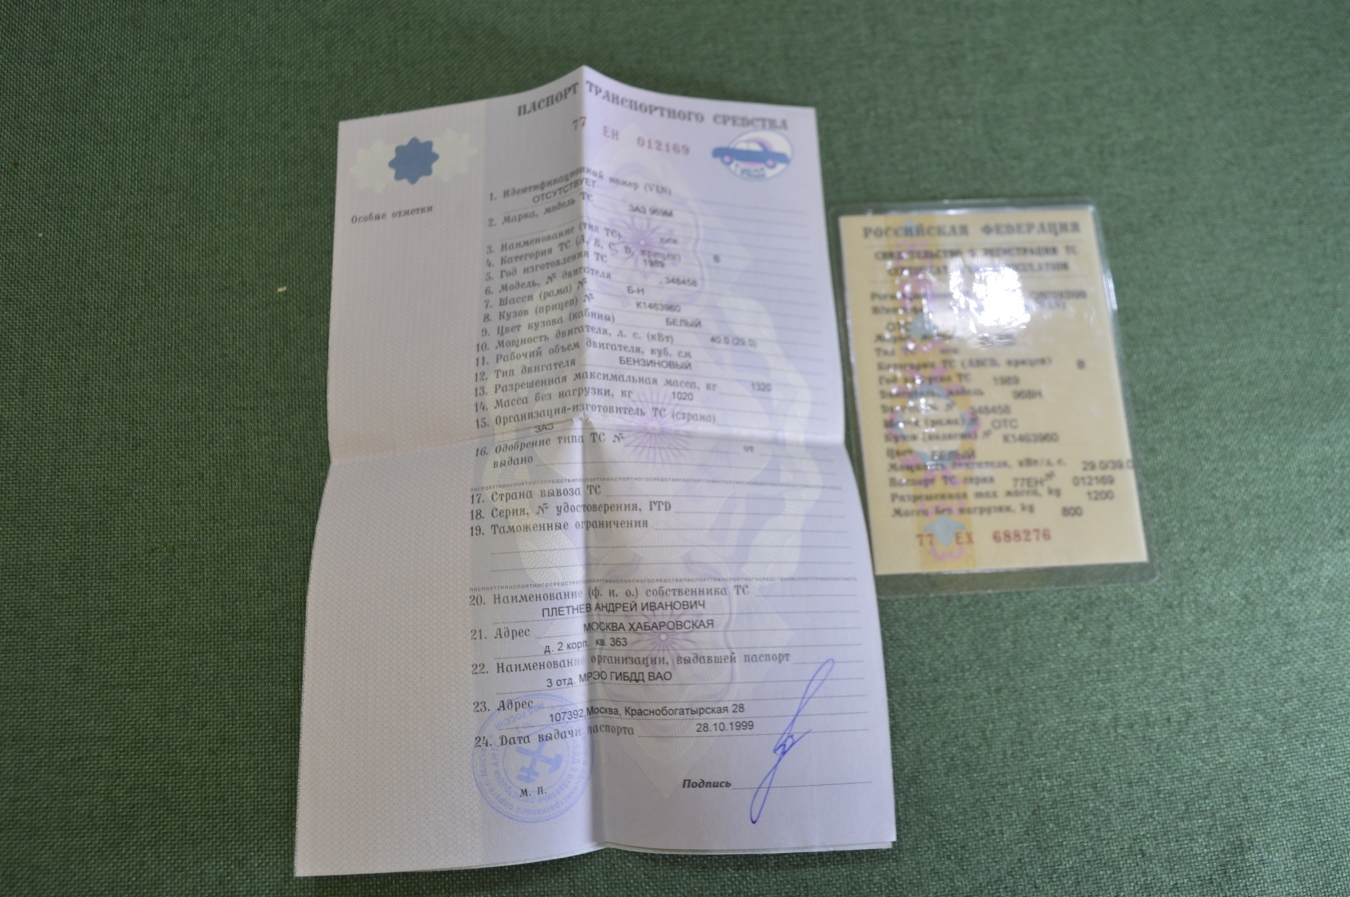 ПАСПОРТ ТРАНСПОРТНОГО СРЕДСТВА
77 ЕН 012169
Особые отметки
1. Идентификационный номер (VIN)
ОТСУТСТВУЕТ
2. Марка, модель ТС ЗАЗ 968М
3. Наименование (тип ТС)
4. Категория ТС (А, В, С, D, прицеп) В
5. Год изготовления ТС 1989
6. Модель, № двигателя 346458
7. Шасси (рама) № Б-Н
8. Кузов (прицеп) № К1463960
9. Цвет кузова (кабины) БЕЛЫЙ
10. Мощность двигателя, л. с. (кВт) 40.0 (29.0)
11. Рабочий объем двигателя, куб. см
12. Тип двигателя БЕНЗИНОВЫЙ
13. Разрешенная максимальная масса, кг 1320
14. Масса без нагрузки, кг 1020
15. Организация-изготовитель ТС (страна)
ЗАЗ
16. Одобрение типа ТС № от
выдано
17. Страна вывоза ТС
18. Серия, № удостоверения, ГТД
19. Таможенные ограничения
20. Наименование (ф. и. о.) собственника ТС
ПЛЕТНЕВ АНДРЕЙ ИВАНОВИЧ
21. Адрес МОСКВА ХАБАРОВСКАЯ
д. 2 корп. кв. 363
22. Наименование организации, выдавшей паспорт
3 отд. МРЭО ГИБДД ВАО
23. Адрес
107392,Москва, Краснобогатырская 28
24. Дата выдачи паспорта 28.10.1999
М. П.
Подпись
РОССИЙСКАЯ ФЕДЕРАЦИЯ
СВИДЕТЕЛЬСТВО О РЕГИСТРАЦИИ ТС
Категория ТС (ABCD, прицеп) В
Год выпуска ТС 1989
968Н
346458
Шасси (рама) № ОТС
Кузов № К1463960
Цвет БЕЛЫЙ
Мощность двигателя, кВт/л. с. 29.0/39.0
Паспорт ТС серия 77ЕН № 012169
Разрешенная max масса, kg 1200
Масса без нагрузки, kg 800
77 ЕХ 688276